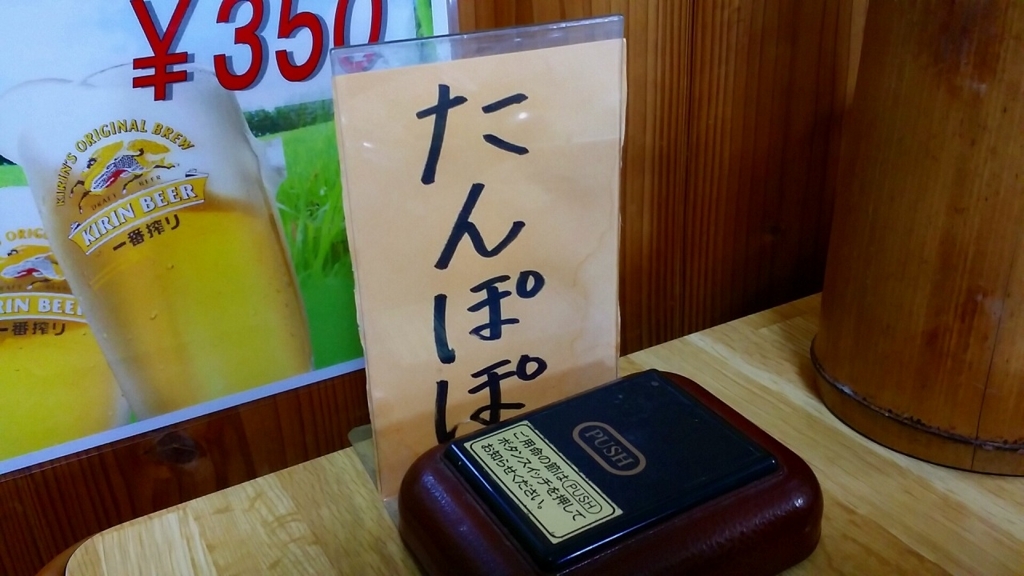 ¥350
KIRIN'S ORIGINAL BREW
DRAFT BEER
KIRIN BEER
一番搾り
KIRIN BEER
一番搾り
たんぽぽ
PUSH
ご用命の節はPUSH
ボタンスイッチを押して
お知らせください。